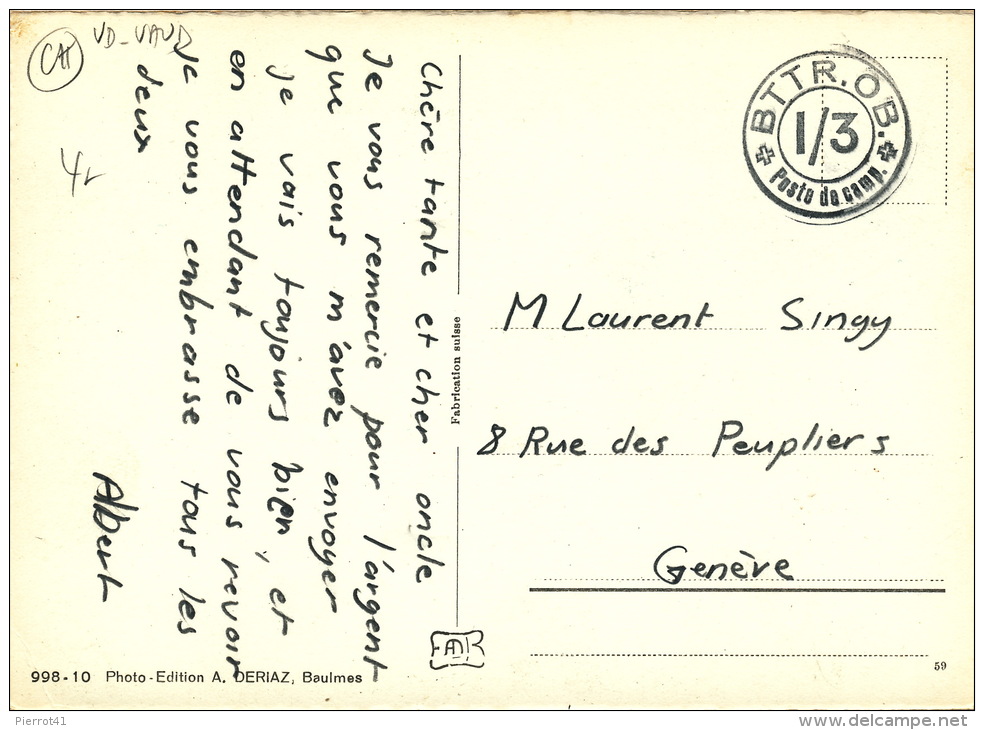 CH
VD-VAUD
4
Chère tante et cher oncle
Je vous remercie pour l'argent
que vous m'avez envoyer
je vais toujours bien, et
en attendant de vous revoir
je vous embrasse tous les
deux
Albert
Fabrication suisse
BTTR. OB.
1/3
Poste de camp.
M Laurent Singy
8 Rue des Peupliers
Genève
998-10 Photo-Edition A. DERIAZ, Baulmes
59
Pierrot41
www.delcampe.net